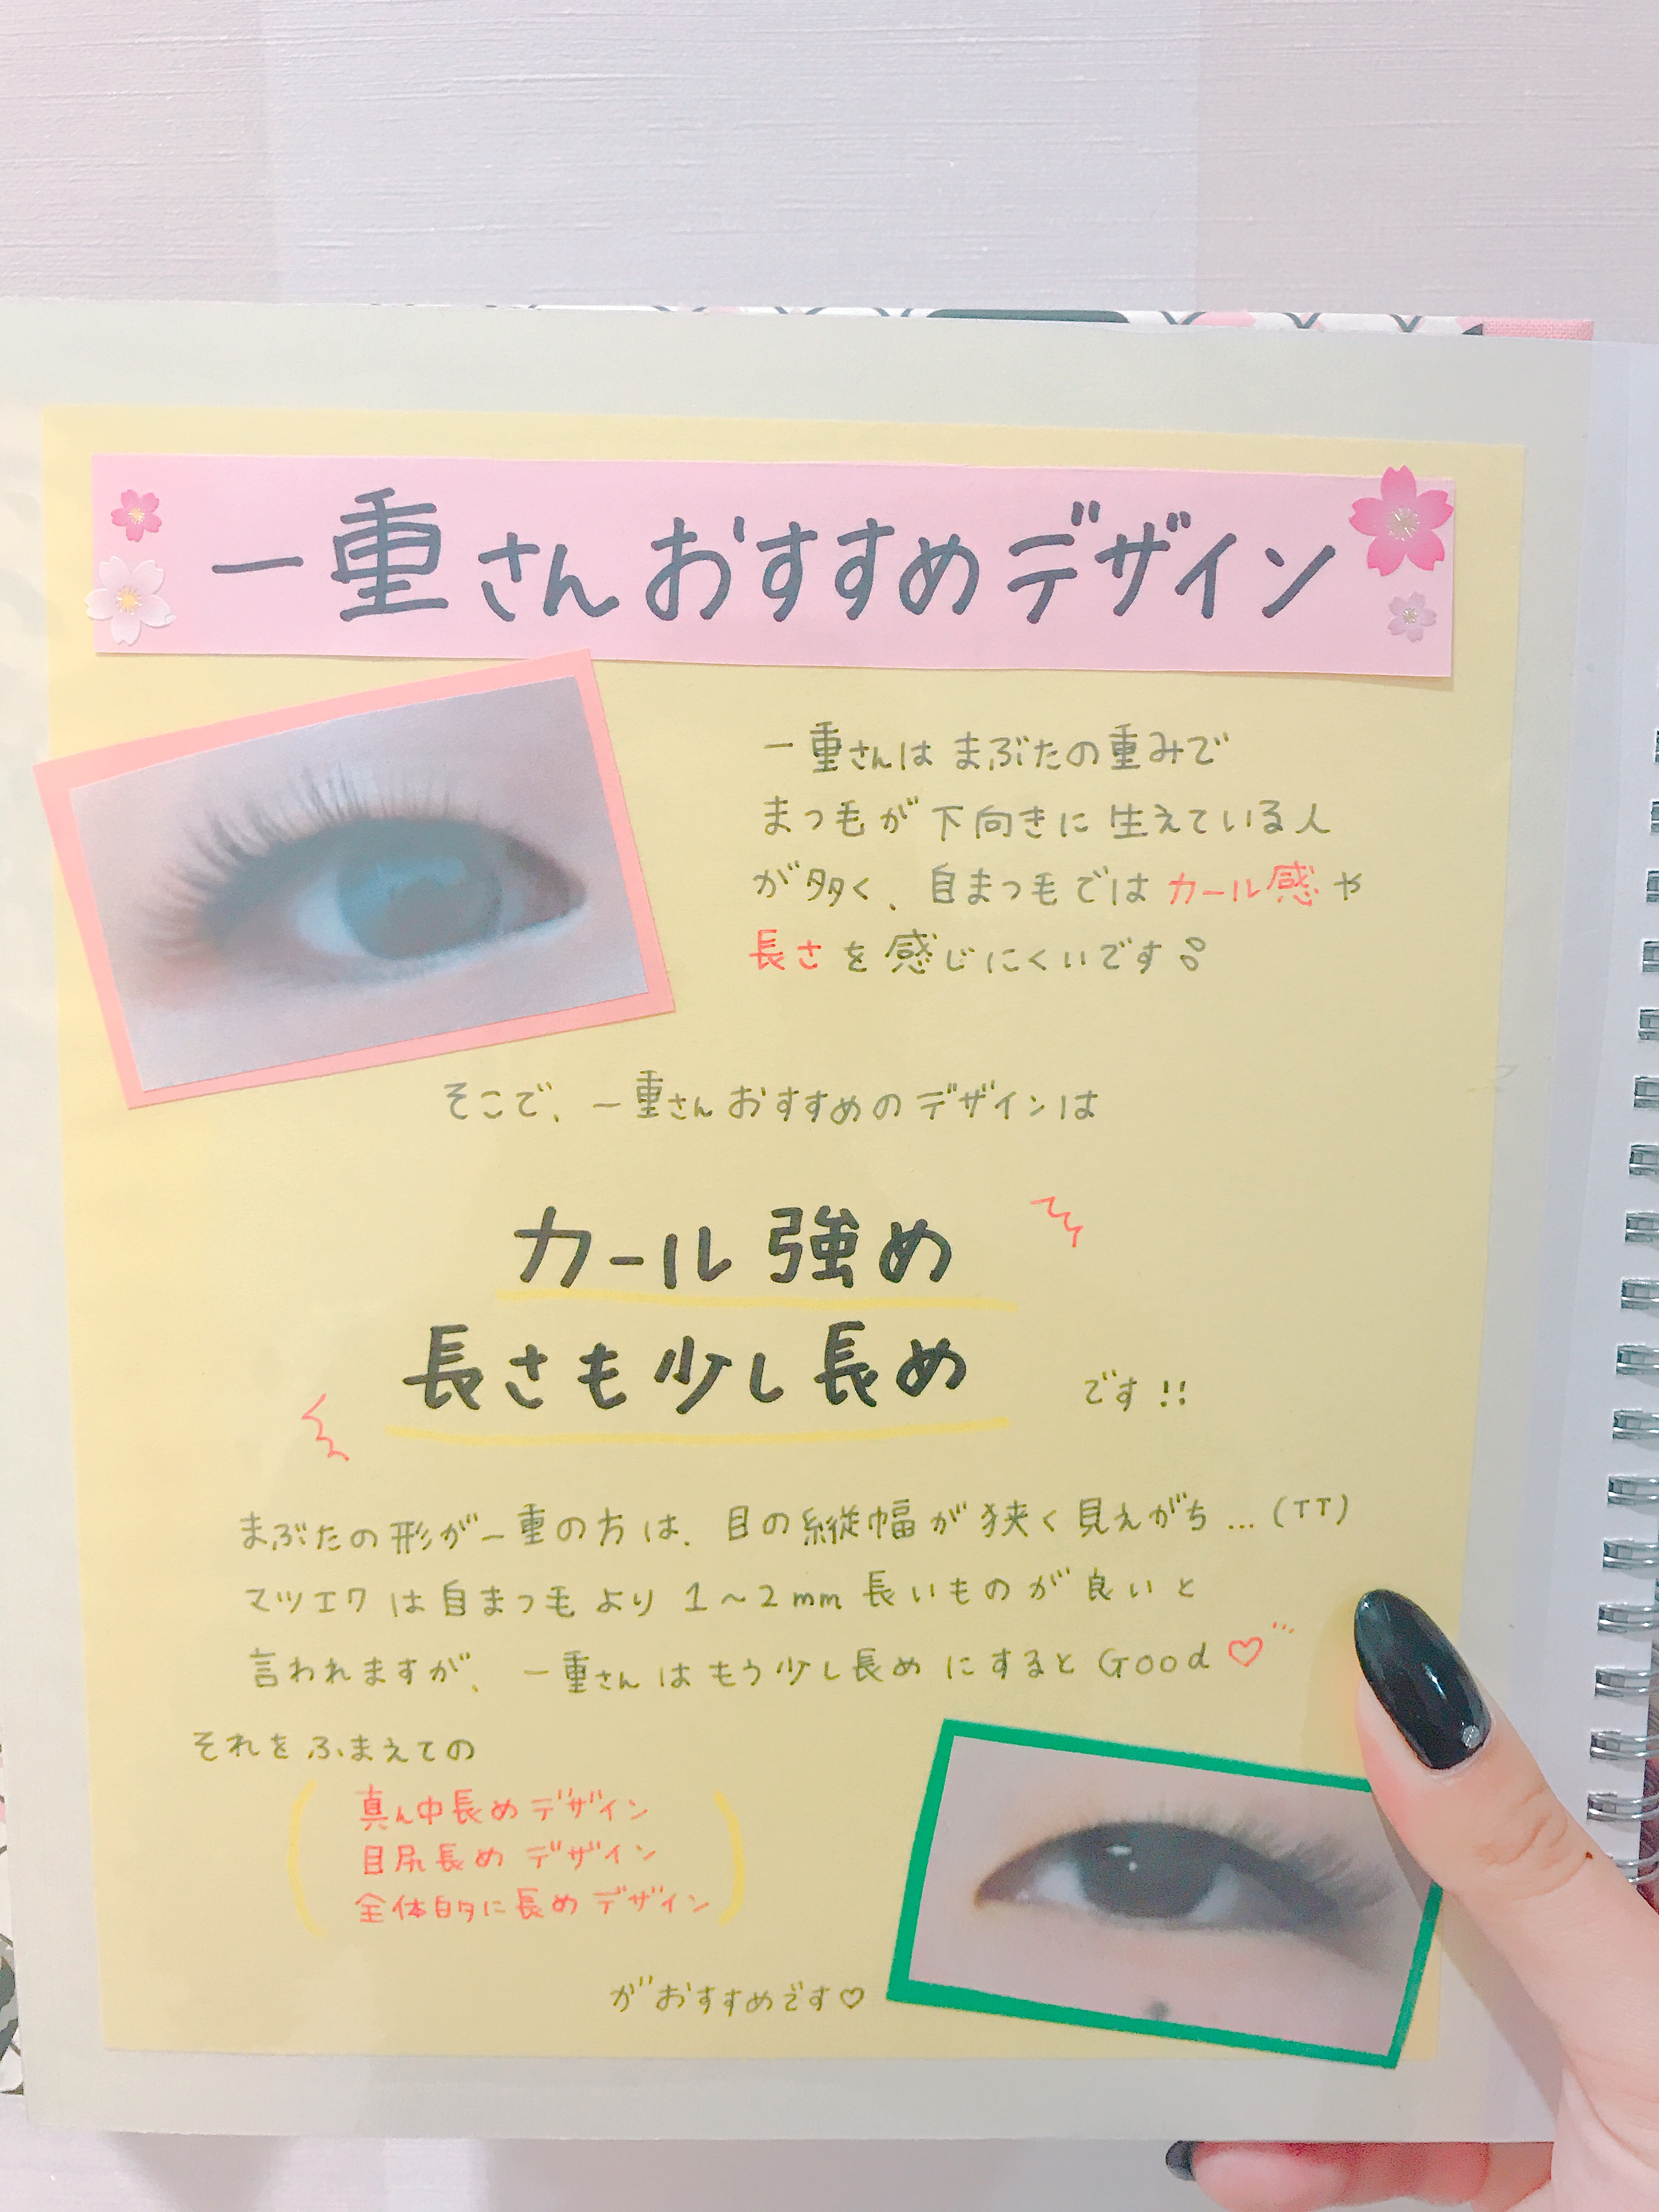 一重さんおすすめデザイン
一重さんは まぶたの重みで
まつ毛が 下向きに 生えている人
が多く、自まつ毛では カール感 や
長さ を 感じにくいです。
そこで、一重さん おすすめの デザインは
カール 強め
長さも少し長め です!!
まぶたの形が一重の方は、目の縦幅が狭く見えがち…(TT)
マツエクは自まつ毛より 1〜2mm 長いものが良いと
言われますが、一重さんはもう少し長めにするとGood♡
それをふまえての
真ん中長めデザイン
目尻長めデザイン
全体的に長めデザイン
がおすすめです♡